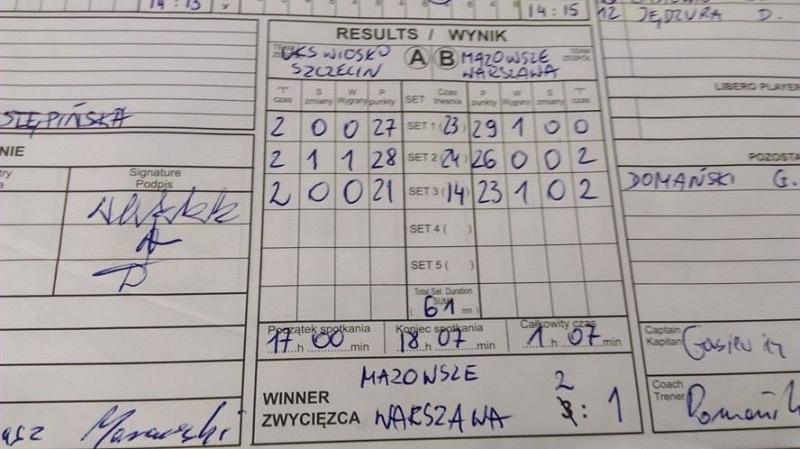 14:13
14:15
12 JĘDZURA D.
RESULTS / WYNIK
UKS WIOSKO SZCZECIN A B MAZOWSZE WARSZAWA
LIBERO PLAYER
"T" czas S zmiany W Wygrany P punkty SET Czas trwania P punkty W Wygrany S zmiany "T" czas
2 0 0 27 SET 1 (23) 29 1 0 0
2 1 1 28 SET 2 (24) 26 0 0 2
2 0 0 21 SET 3 (14) 23 1 0 2
SET 4 ( )
SET 5 ( )
Total Set Duration
(61 mn)
STĘPIŃSKA
NIE
Signature
Podpis
POZOSTA
DOMAŃSKI G.
Początek spotkania Koniec spotkania Całkowity czas
17 h 00 min 18 h 07 min 1 h 07 min
WINNER MAZOWSZE 2
ZWYCIĘZCA WARSZAWA 3 : 1
Captain
Kapitan
Coach
Trener